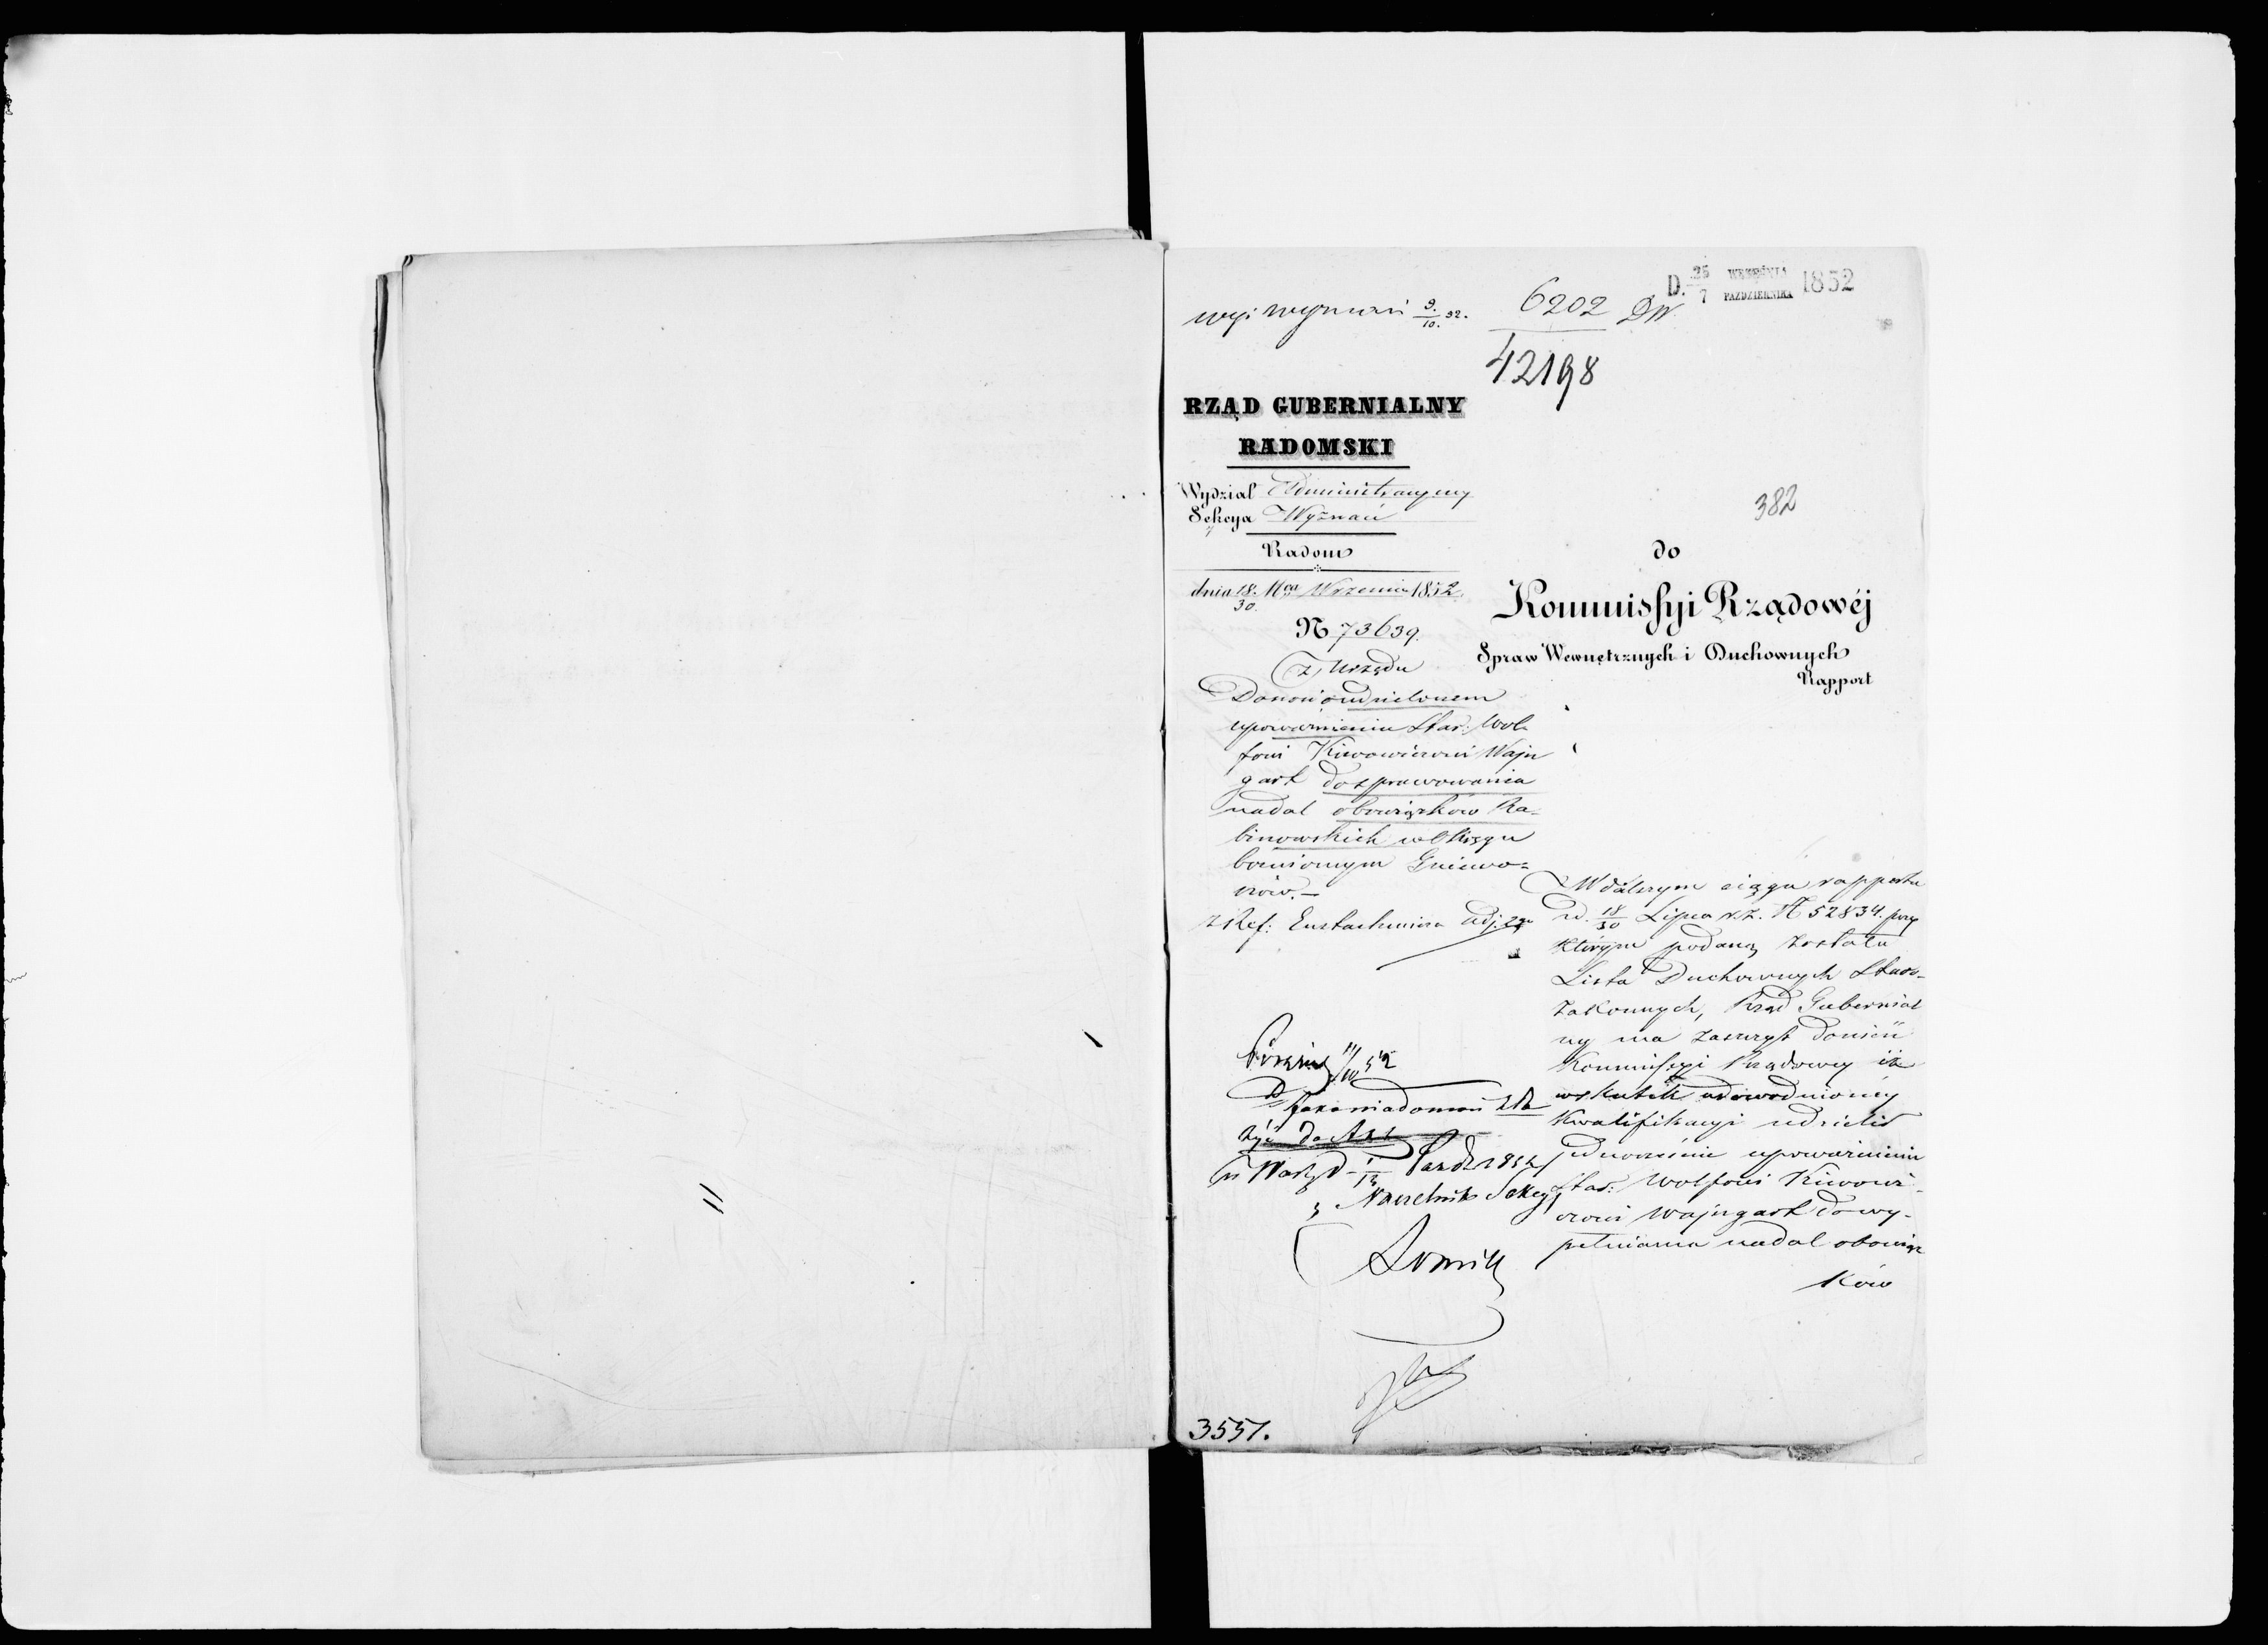 D. 25/7 WRZEŚNIA PAZDZIERNIKA 1852
wyznań 9/10. 52.
6202 DW
42198
RZĄD GUBERNIALNY
RADOMSKI
Wydział Administracyjny
Sekcya Wyznań
Radom
dnia 18./30. Mca Wrzesnia 1852.
N 73639.
Z Urzędu
Donosi o udzielonem
upoważnieniu Star: Wol-
fowi Kiwowiczowi Wajn
gart do sprawowania
nadal obowiązków Ra-
binowskich w Okręgu
bożniczym Gniewo=
szów.—
382
do
Kommissyi Rządowéj
Spraw Wewnętrznych i Duchownych
Rapport
W dalszym ciągu rapportu
z d. 18/30 Lipca r.b. N 52834. przy
którym podaną została
Lista Duchownych Staro-
zakonnych, Rząd Gubernial
ny ma zaszczyt donieść
Kommissyi Rządowey iż
wskutek udowodnioney
kwalifikacyi udzielił
jednocześnie upoważnienie
Star: Wolfowi Kiwowi-
czowi Wajngart do wy-
pełniania nadal obowiąz
ków
11/10 52
do Akt
Naczelnik Sekcyi
3557.